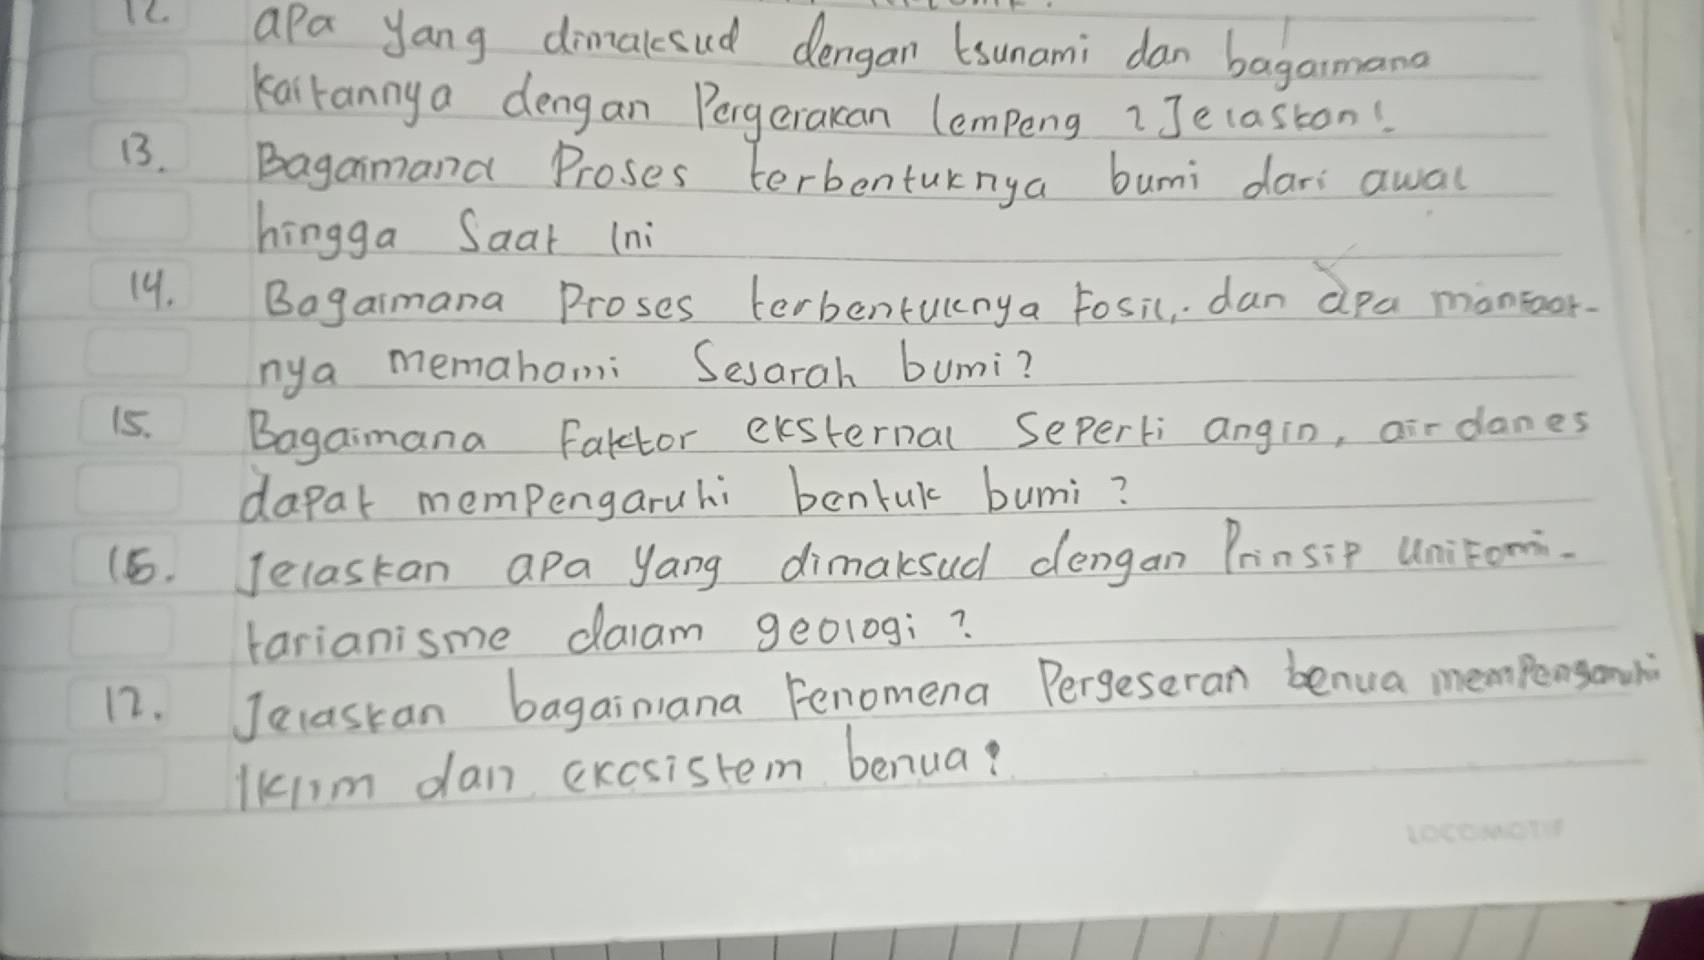 12. apa yang dimaksud dengan tsunami dan bagaimana
kaitannya dengan Pergerakan lempeng ? Jelaskan!
13. Bagaimana Proses terbentuknya bumi dari awal
hingga Saat ini
14. Bagaimana Proses terbentuknya Fosil, dan apa manfaat-
nya memahami Sejarah bumi?
15. Bagaimana Faktor eksternal Seperti angin, air dan es
dapat mempengaruhi bentuk bumi?
16. Jelaskan apa yang dimaksud dengan Prinsip Unifomi-
tarianisme dalam geologi?
17. Jelaskan bagaimana Fenomena Pergeseran benua mempengaruhi
Iklim dan ekosistem benua?
LOCOMOTIF